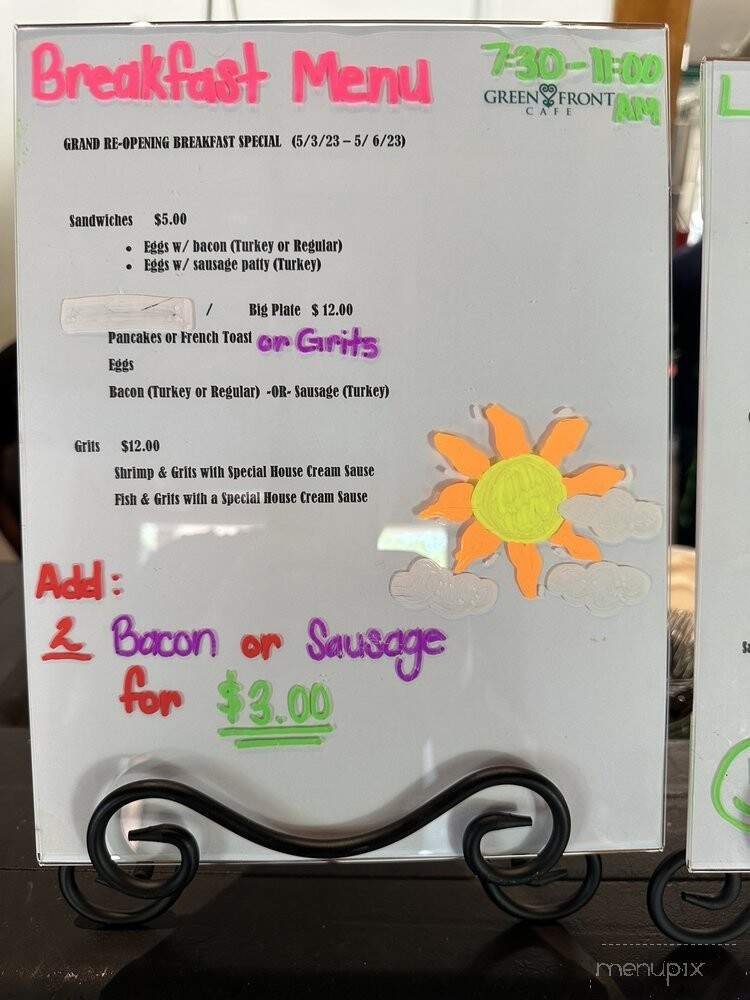 Breakfast Menu
7:30-11:00
AM
GREEN FRONT
CAFE
GRAND RE-OPENING BREAKFAST SPECIAL (5/3/23 – 5/ 6/23)
Sandwiches $5.00
• Eggs w/ bacon (Turkey or Regular)
• Eggs w/ sausage patty (Turkey)
/ Big Plate $ 12.00
Pancakes or French Toast or Grits
Eggs
Bacon (Turkey or Regular) -OR- Sausage (Turkey)
Grits $12.00
Shrimp & Grits with Special House Cream Sause
Fish & Grits with a Special House Cream Sause
Add:
2 Bacon or Sausage
for $3.00
L
menupix